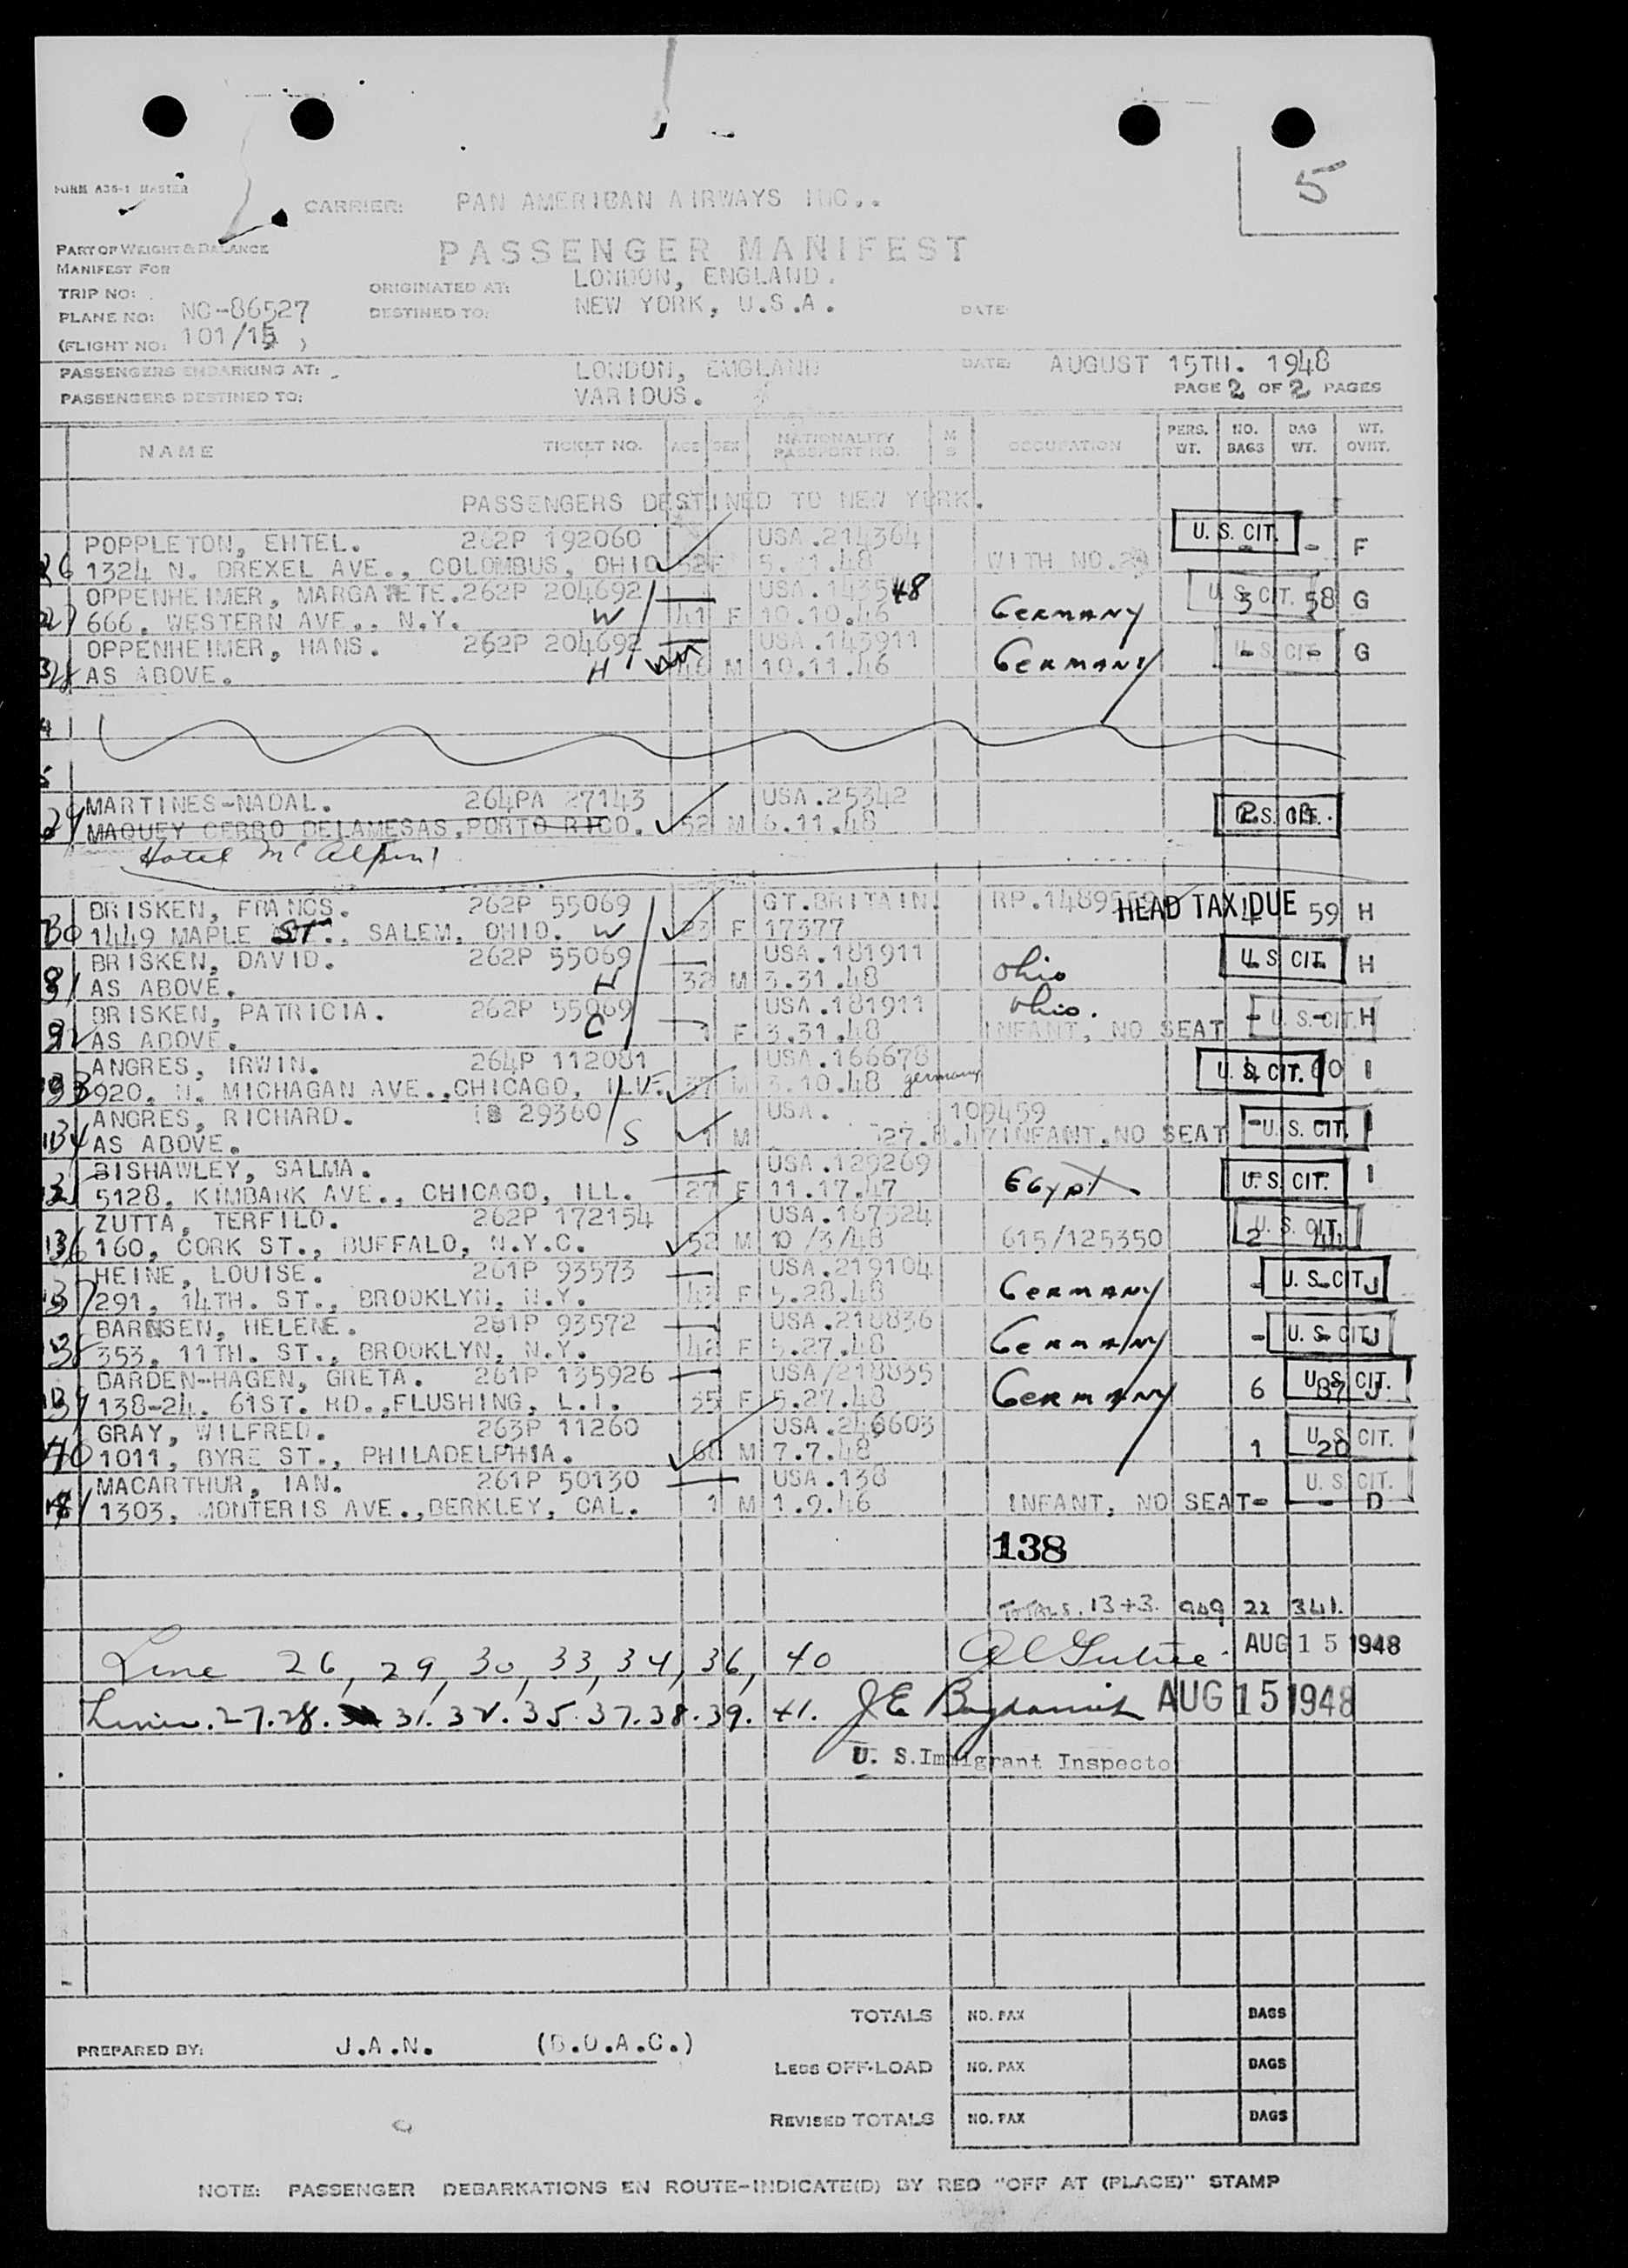 5
FORM A36-1 MASTER
CARRIER: PAN AMERICAN AIRWAYS INC..
PART OF WEIGHT & BALANCE
PASSENGER MANIFEST
MANIFEST FOR
LONDON, ENGLAND.
TRIP NO: ORIGINATED AT:
PLANE NO: NC-86527 DESTINED TO: NEW YORK, U.S.A. DATE
(FLIGHT NO: 101/15 )
PASSENGERS EMBARKING AT: LONDON, ENGLAND DATE: AUGUST 15TH. 1948
PASSENGERS DESTINED TO: VARIOUS. PAGE 2 OF 2 PAGES
NAME TICKET NO. AGE SEX NATIONALITY PASSPORT NO. M S OCCUPATION PERS. WT. NO. BAGS BAG WT. WT. OVHT.
PASSENGERS DESTINED TO NEW YORK.
POPPLETON, EHTEL. 262P 192060 USA.214364 U. S. CIT. - - F
26 1324 N. DREXEL AVE., COLOMBUS, OHIO F WITH NO.
OPPENHEIMER, MARGARETE. 262P 204692 USA. 48 U. S. CIT. 3 58 G
27 666, WESTERN AVE., N.Y. W 41 F 10.10.46 GERMANY
OPPENHEIMER, HANS. 262P 204692 USA.143911 U. S. CIT. - - G
28 AS ABOVE. H 46 M 10.11.46 GERMANY
MARTINES-NADAL. 264PA 27143 USA.25342 U. S. CIT.
29 MAQUEY CERRO DELAMESAS, PORTO RICO. 52 M 6.11.48
Hotel McAlpin
BRISKEN, FRANCS. 262P 55069 GT.BRITAIN. HEAD TAX DUE 59 H
30 1449 MAPLE ST., SALEM, OHIO. W 23 F 17377
BRISKEN, DAVID. 262P 55069 USA.181911 U. S. CIT. H
31 AS ABOVE. H 32 M 3.31.48 Ohio
BRISKEN, PATRICIA. 262P 55069 USA.181911 Ohio. - U. S. CIT. H
32 AS ABOVE. C 1 F 3.31.48 INFANT, NO SEAT
ANGRES, IRWIN. 264P 112081 USA.166678 U. S. CIT. I
33 920, N. MICHAGAN AVE., CHICAGO, ILL. F. 37 M 3.10.48 germany
ANGRES, RICHARD. 29360 USA. 109459 - U. S. CIT. I
34 AS ABOVE. S 1 M 27.8.47 INFANT, NO SEAT
BISHAWLEY, SALMA. USA.129269 U. S. CIT. I
35 5128, KIMBARK AVE., CHICAGO, ILL. 27 F 11.17.47 EGYPT
ZUTTA, TERFILO. 262P 172154 USA.167324 2 U. S. CIT.
36 160, CORK ST., BUFFALO, N.Y.C. 52 M 10/3/48 615/125350
HEINE, LOUISE. 261P 93573 USA.219104 - U. S. CIT. J
37 291, 14TH. ST., BROOKLYN, N.Y. 43 F 5.28.48 GERMANY
BARNSEN, HELENE. 261P 93572 USA.218836 - U. S. CIT. J
38 353, 11TH. ST., BROOKLYN, N.Y. 42 F 5.27.48 GERMANY
DARDEN-HAGEN, GRETA. 261P 135926 USA/218835 U. S. CIT.
39 138-24, 61ST. RD., FLUSHING, L.I. 35 F 5.27.48 GERMANY 6 87 J
GRAY, WILFRED. 263P 11260 USA.246603 U. S. CIT.
40 1011, BYRE ST., PHILADELPHIA. 60 M 7.7.48 1 20
MACARTHUR, IAN. 261P 50130 USA.138 U. S. CIT.
41 1303, MONTERIS AVE., BERKLEY, CAL. 1 M 1.9.46 INFANT, NO SEAT - - D
138
TOTALS. 13+3. 949 22 341.
Line 26, 29, 30, 33, 34, 36, 40 AUG 15 1948
Lines. 27. 28. 31. 32. 35. 37. 38. 39. 41. J E AUG 15 1948
U. S. Immigrant Inspecto
TOTALS NO. PAX BAGS
PREPARED BY: J.A.N. (B.O.A.C.)
LESS OFF-LOAD NO. PAX BAGS
REVISED TOTALS NO. PAX BAGS
NOTE: PASSENGER DEBARKATIONS EN ROUTE-INDICATE(D) BY RED "OFF AT (PLACE)" STAMP